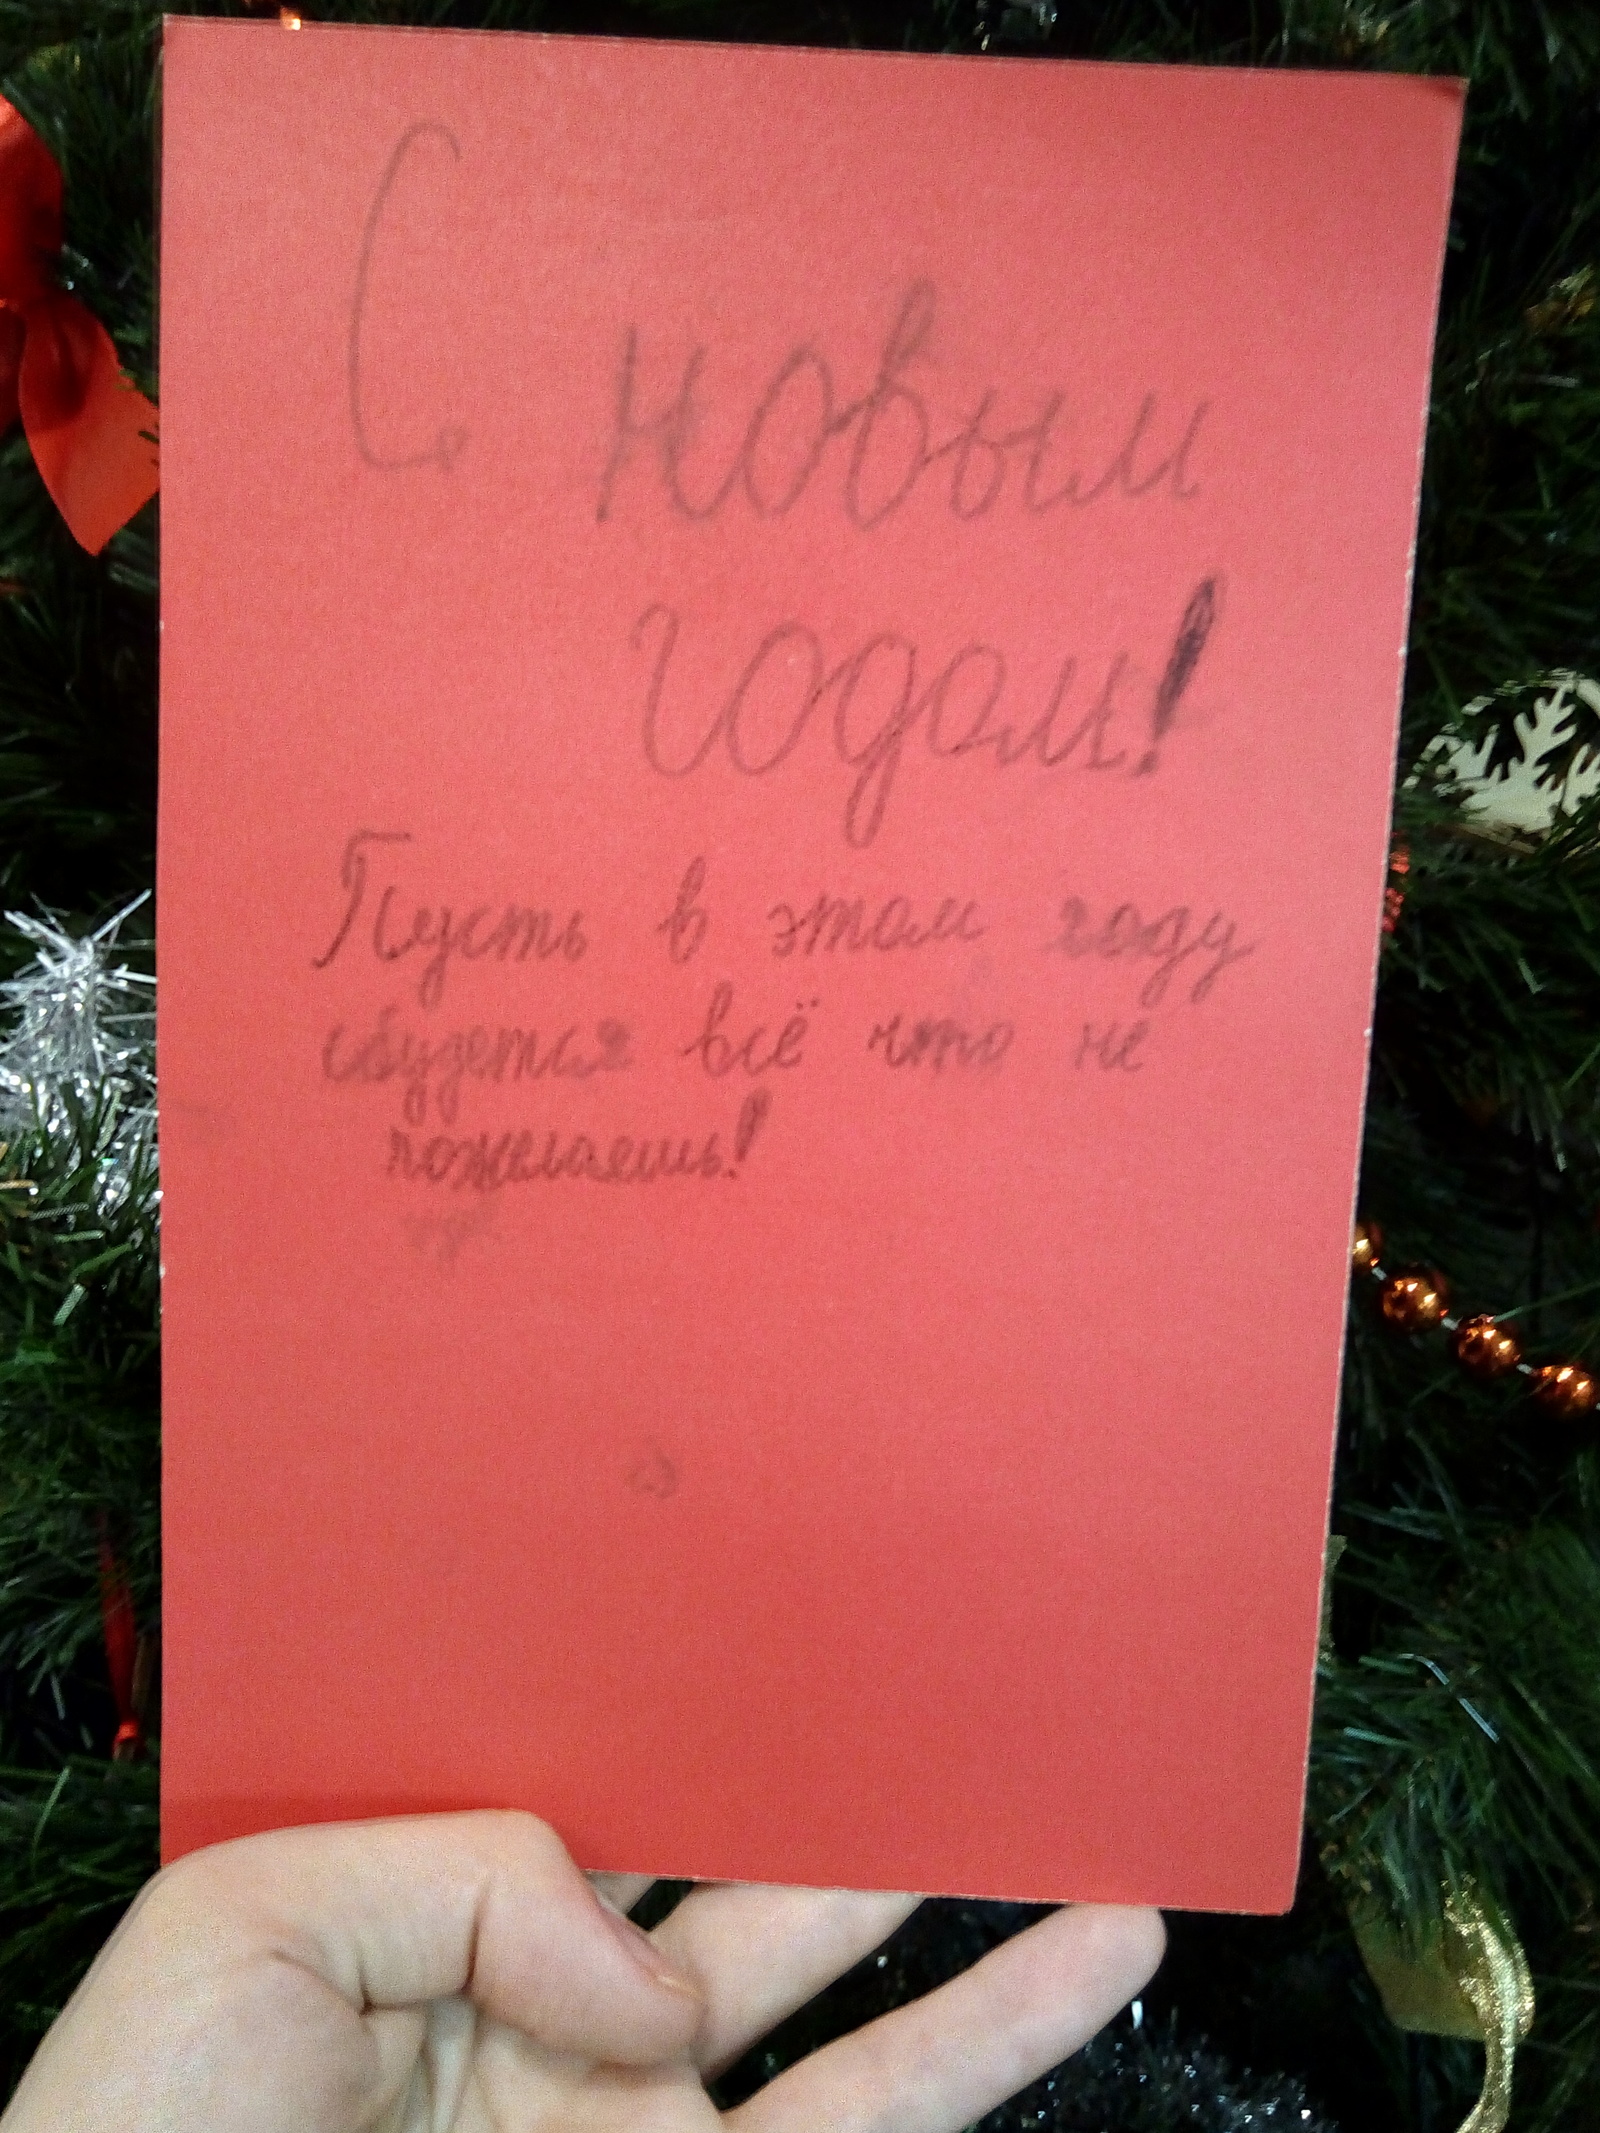 С новым
годом!
Пусть в этом году
сбудется всё что не
пожелаешь!